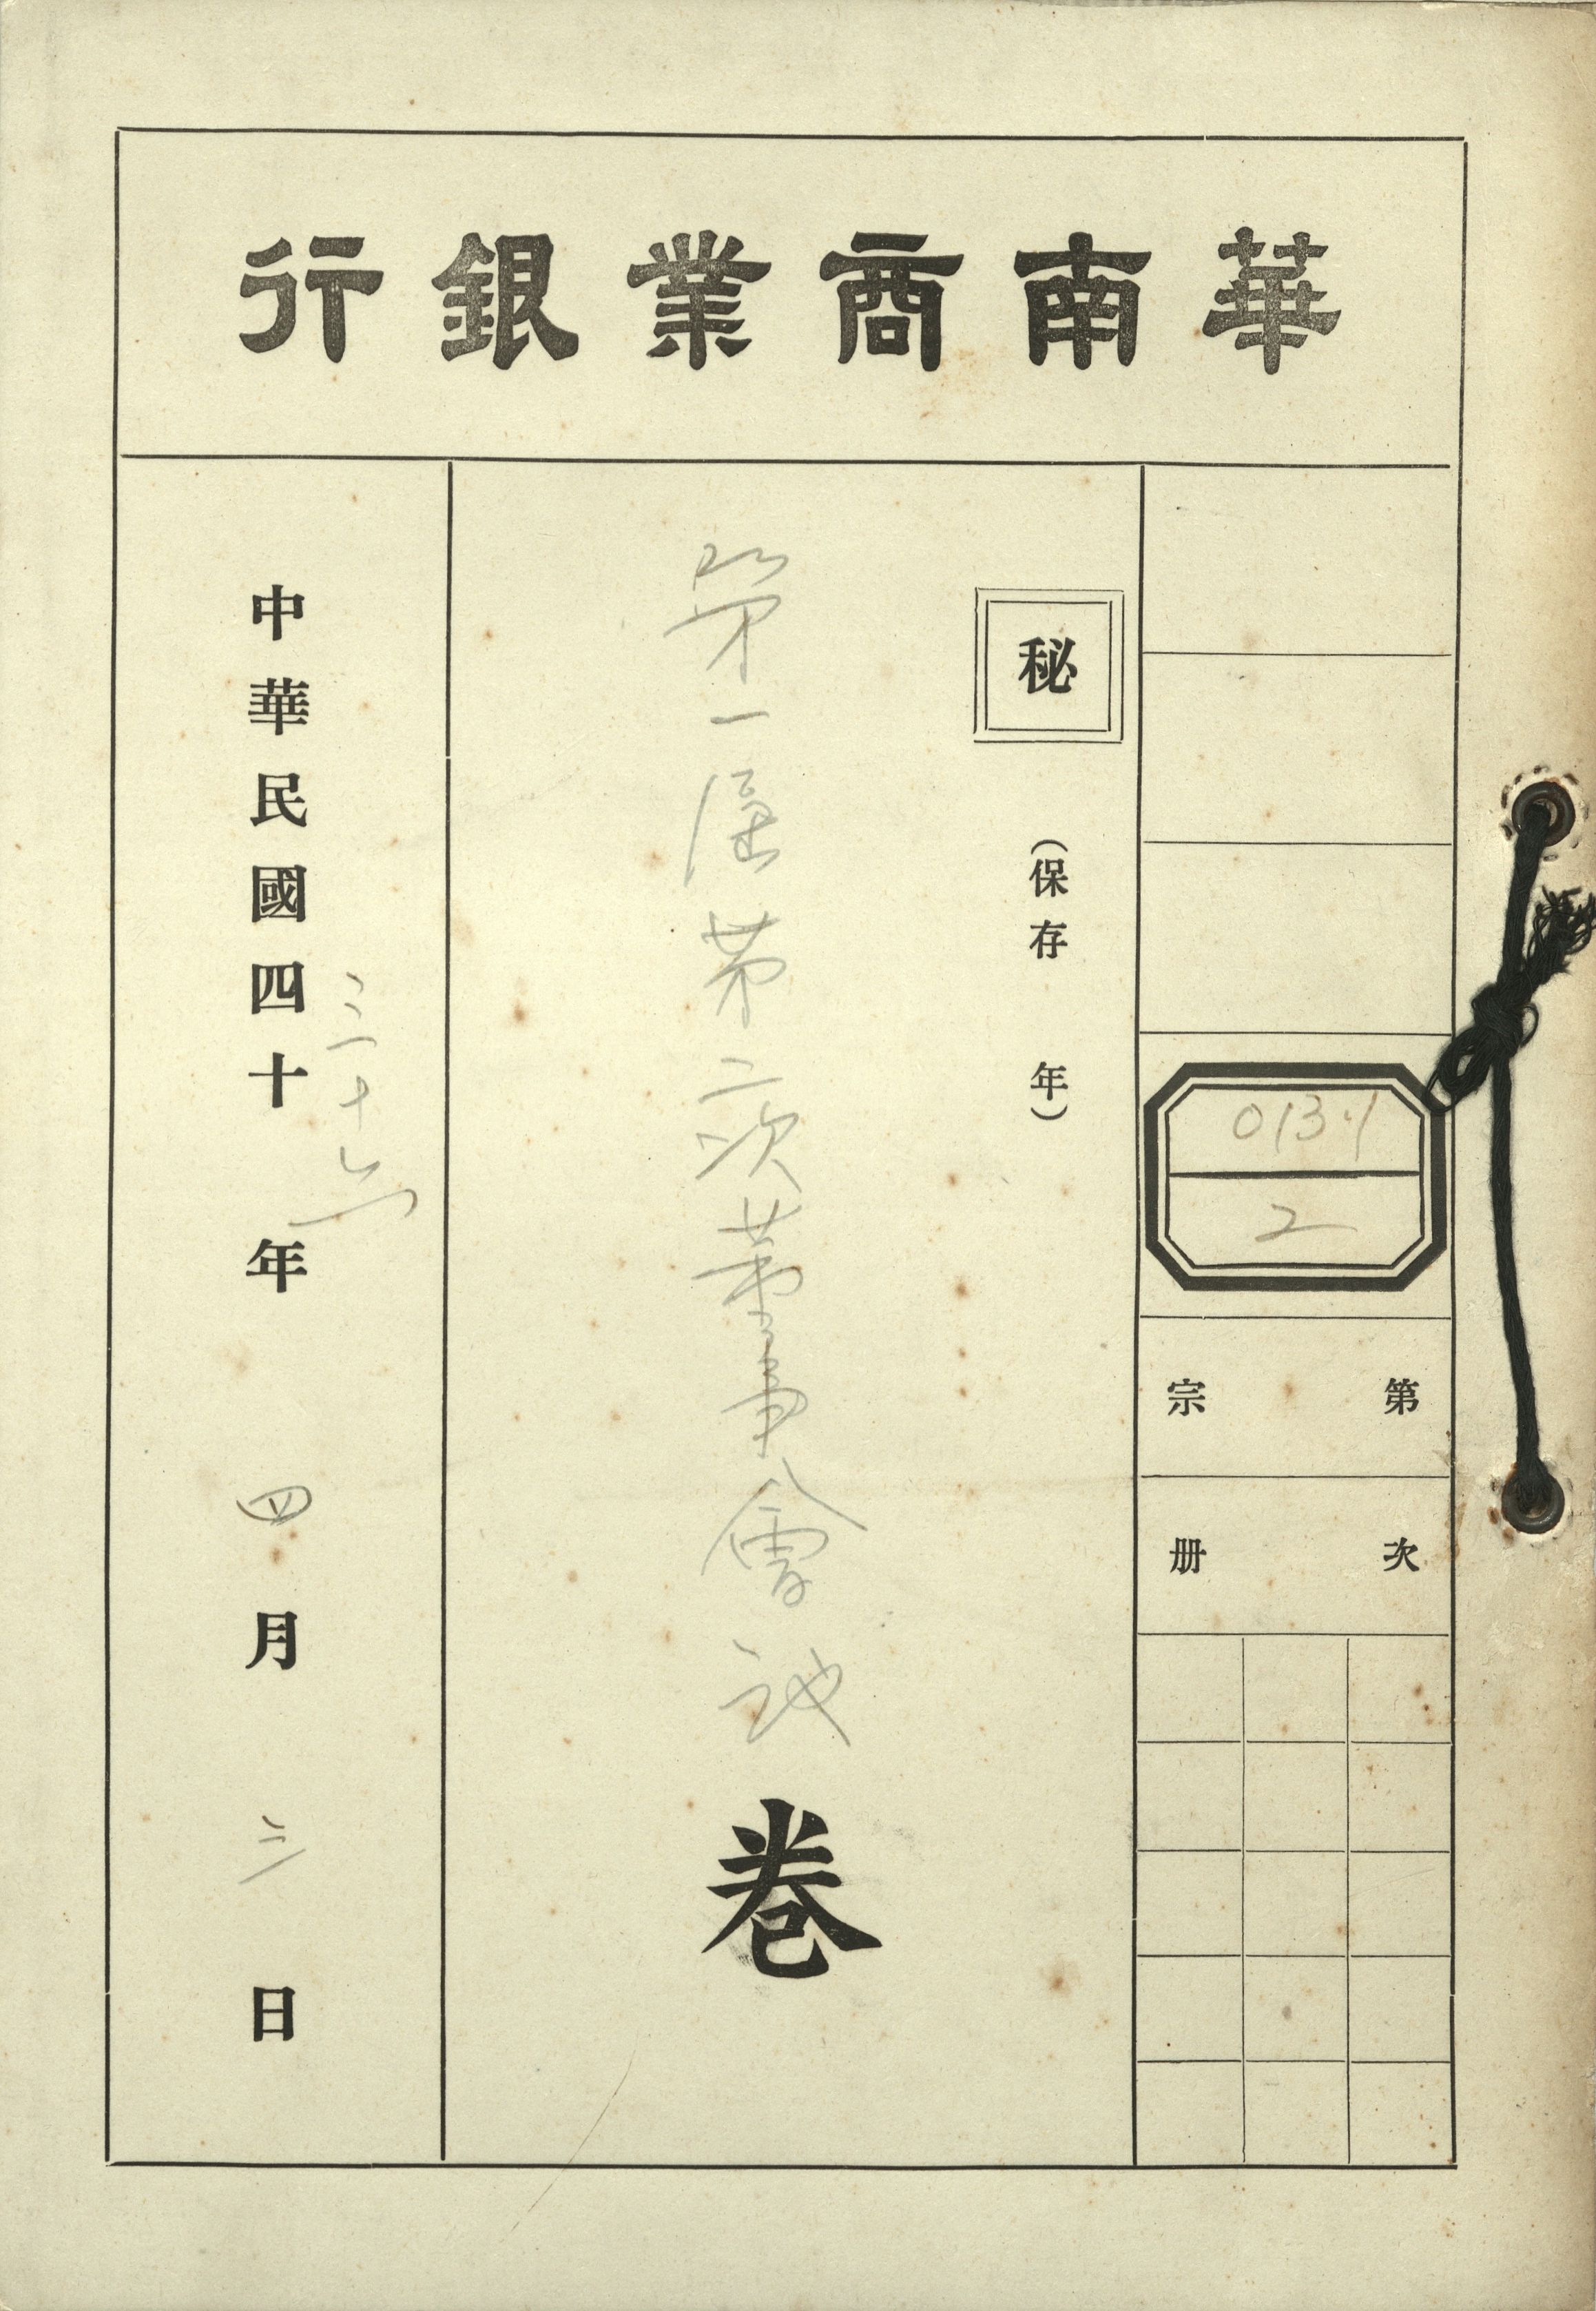 華南商業銀行
013.1
2
第宗
次册
秘
(保存 年)
第一屆第二次董事會議卷
三十六
中華民國四十年四月三日